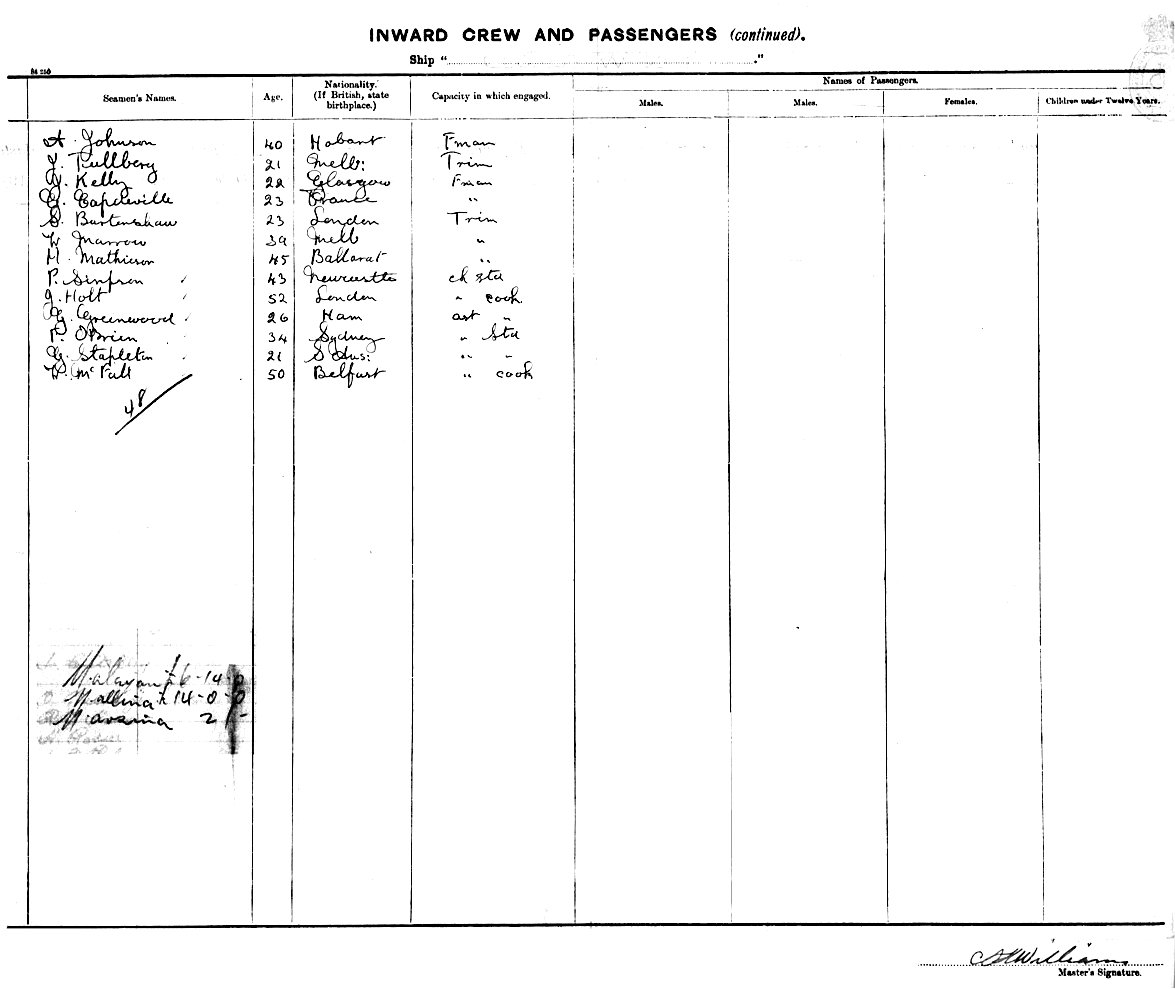 INWARD CREW AND PASSENGERS (continued).
Ship "                    ."
84 250
Seamen's Names. Age. Nationality. (If British, state birthplace.) Capacity in which engaged. Names of Passengers.
Males. Males. Females. Children under Twelve Years.
A. Johnson 40 Hobart Fman
J. Tullberg 21 Melb: Trim
W. Kelly 22 Glasgow Fman
G. Capdeville 23 France "
S. Burtenshaw 23 London Trim
W Marrow 39 Melb "
H. Mathieson 45 Ballarat "
P. Simpson 43 Newcastle ch std
J. Holt 52 London " cook
G. Greenwood 26 Ham ast "
P. O'Brien 34 Sydney " Std
G. Stapleton 21 S Aus: " "
W. McFall 50 Belfast " cook
48
Malayan £6-14-0
Mallina £14-0-0
Mavarina 2/-
Williams
Master's Signature.